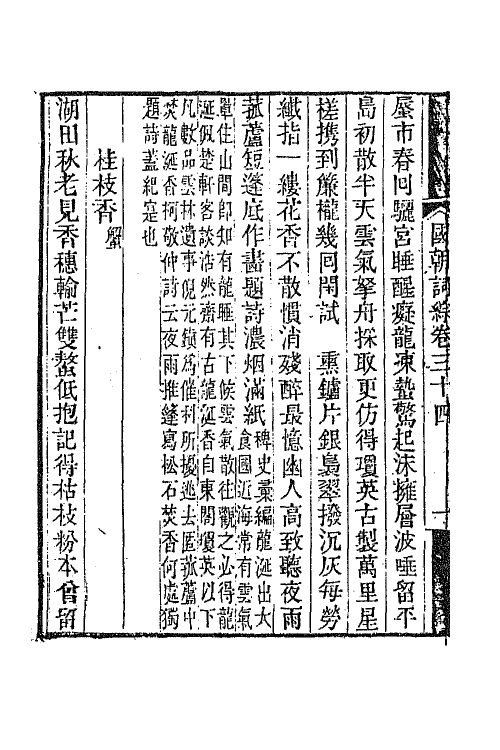 國朝詞綜卷三十四
蜃市春回驪宮睡醒癡龍凍蟄驚起沫擁層波唾留平
島初散半天雲氣拏舟採取更仿得瓊英古製萬里星
槎携到簾櫳幾囘閒試　熏鑪片銀裊翠撥沉灰每勞
纖指一縷花香不散慣消殘醉最憶幽人高致聽夜雨
菰蘆短篷底作畵題詩濃烟滿紙
稗史彙編龍涎出大
食國近海常有雲氣
罩住山間即知有龍睡其下候雲氣散往觀之必得龍
涎佩楚軒客談浩然齋有古龍涎香自東閤瓊英以下
凡數品雲林遺事倪元鎮爲催科所擾逃去匿菰蘆中
焚龍涎香柯敬仲詩云夜雨推篷寫松石焚香何處獨
題詩蓋紀寔也
桂枝香
蟹
湖田秋老見香穗輸芒雙螯低抱記得枯枝粉本曾留